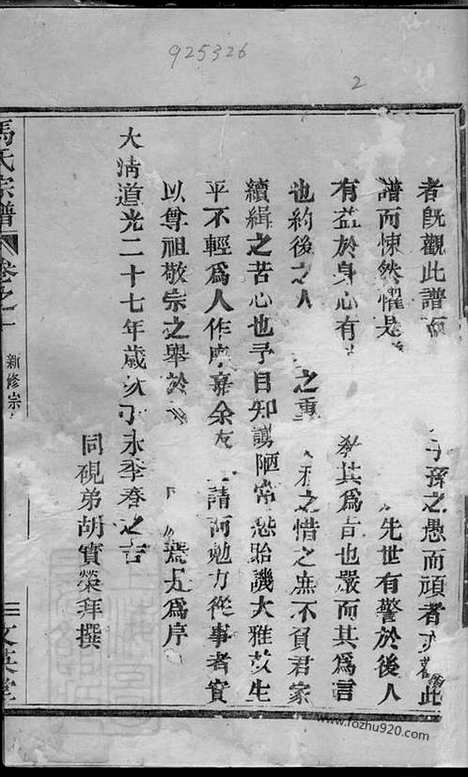 925326
2
者旣觀此譜 子孫之愚而頑者 此
譜而悚然懼是 先世有警於後人
有益於身心有 其爲言也嚴而其爲言
也約後之人 之重 之惜之庶不負君家
續緝之苦心也予自知譾陋常恐貽譏大雅故生
平不輕爲人作 余 請而勉力從事者實
以尊祖敬宗之舉於 爲序
大淸道光二十七年歲次丁未季春之吉
同硯弟胡實榮拜撰
馮氏宗譜 卷之一 新修宗 三 文英堂
www.fozhu920.com